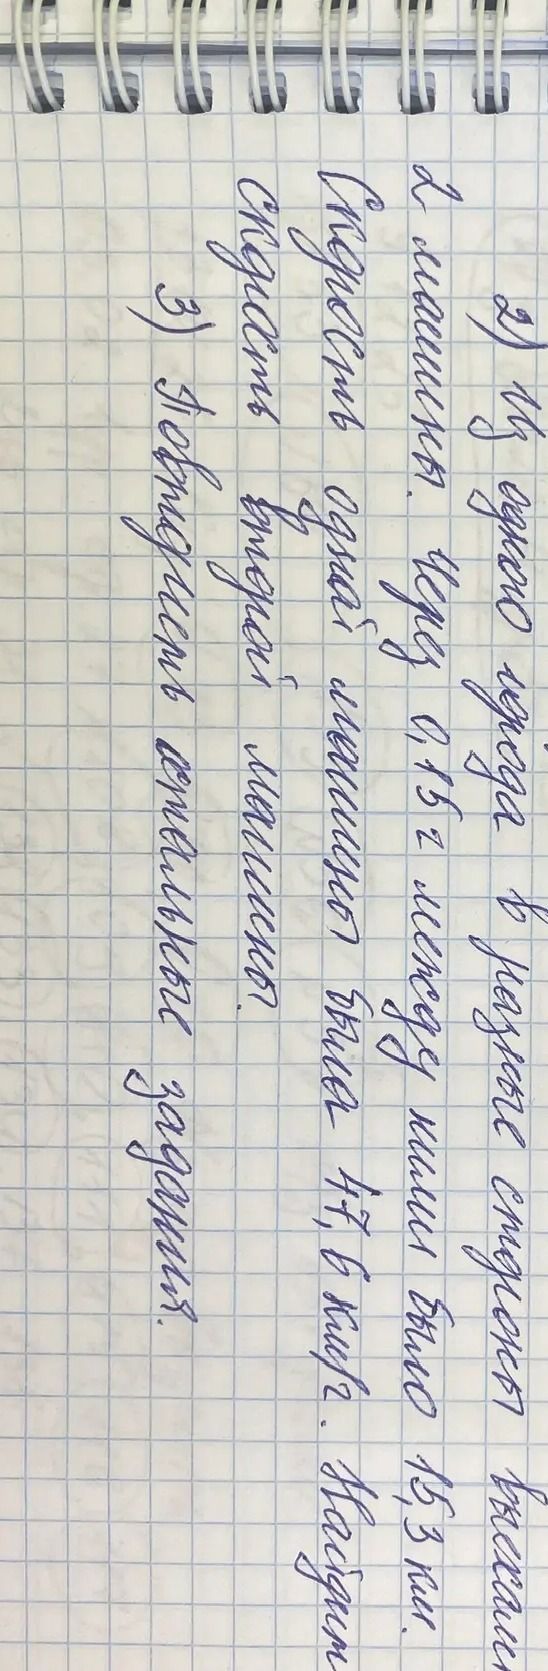 2) Из одного города в разные стороны выехали
2 машины. Через 0,15 ч между ними было 15,3 км.
Скорость одной машины была 47,6 км/ч. Найдит
скорость второй машины.
3) Повторить остальные задания.